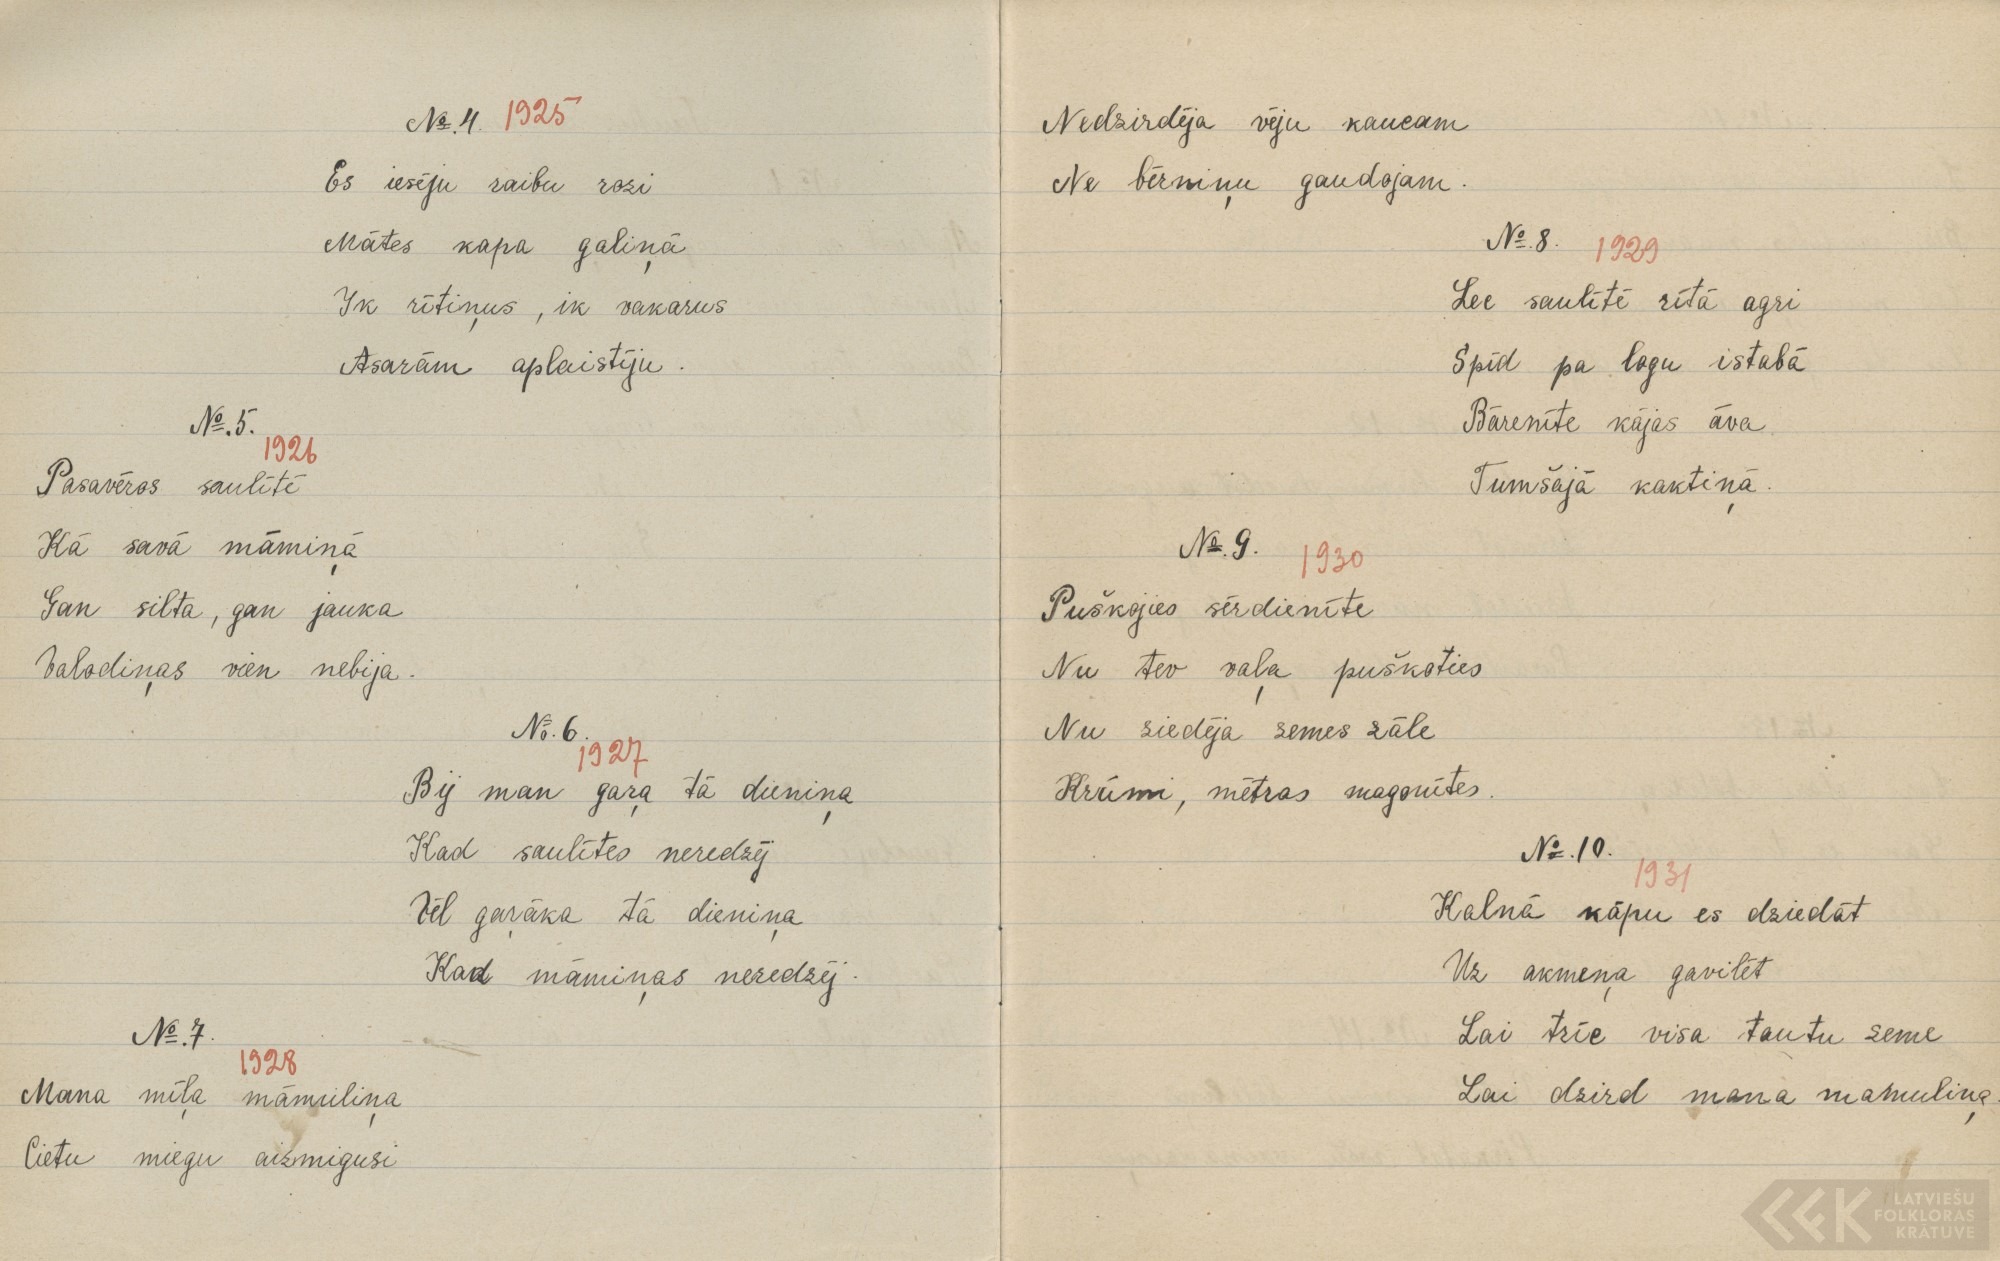 №.4. 1925
Es iesēju raibu rozi
Mātes kapa galiņā
Ik rītiņus, ik vakarus
Asarām aplaistīju.
№.5.
1926
Pasavēros saulītē
Kā savā māmiņā
Gan silta, gan jauka
Valodiņas vien nebija.
№.6.
1927
Bij man gaŗa tā dieniņa
Kad saulītes neredzēj
Vēl gaŗāka tā dieniņa
Kad māmiņas neredzēj.
№.7.
1928
Mana mīļa māmuliņa
Cietu miegu aizmigusi
Nedzirdēja vēju kaucam
Ne bērniņu gaudojam.
№.8. 1929
Lec saulītē rītā agri
Spīd pa logu istabā
Bārenīte kājas āva
Tumšajā kaktiņā.
№.9. 1930
Puškojies sērdienīte
Nu tev vaļa puškoties
Nu ziedēja zemes zāle
Krūmi, mētras magonītes.
№.10.
1931
Kalnā kāpu es dziedāt
Uz akmeņa gavilēt
Lai trīc visa tautu zeme
Lai dzird mana mamuliņa.
LATVIEŠU
FOLKLORAS
KRĀTUVE